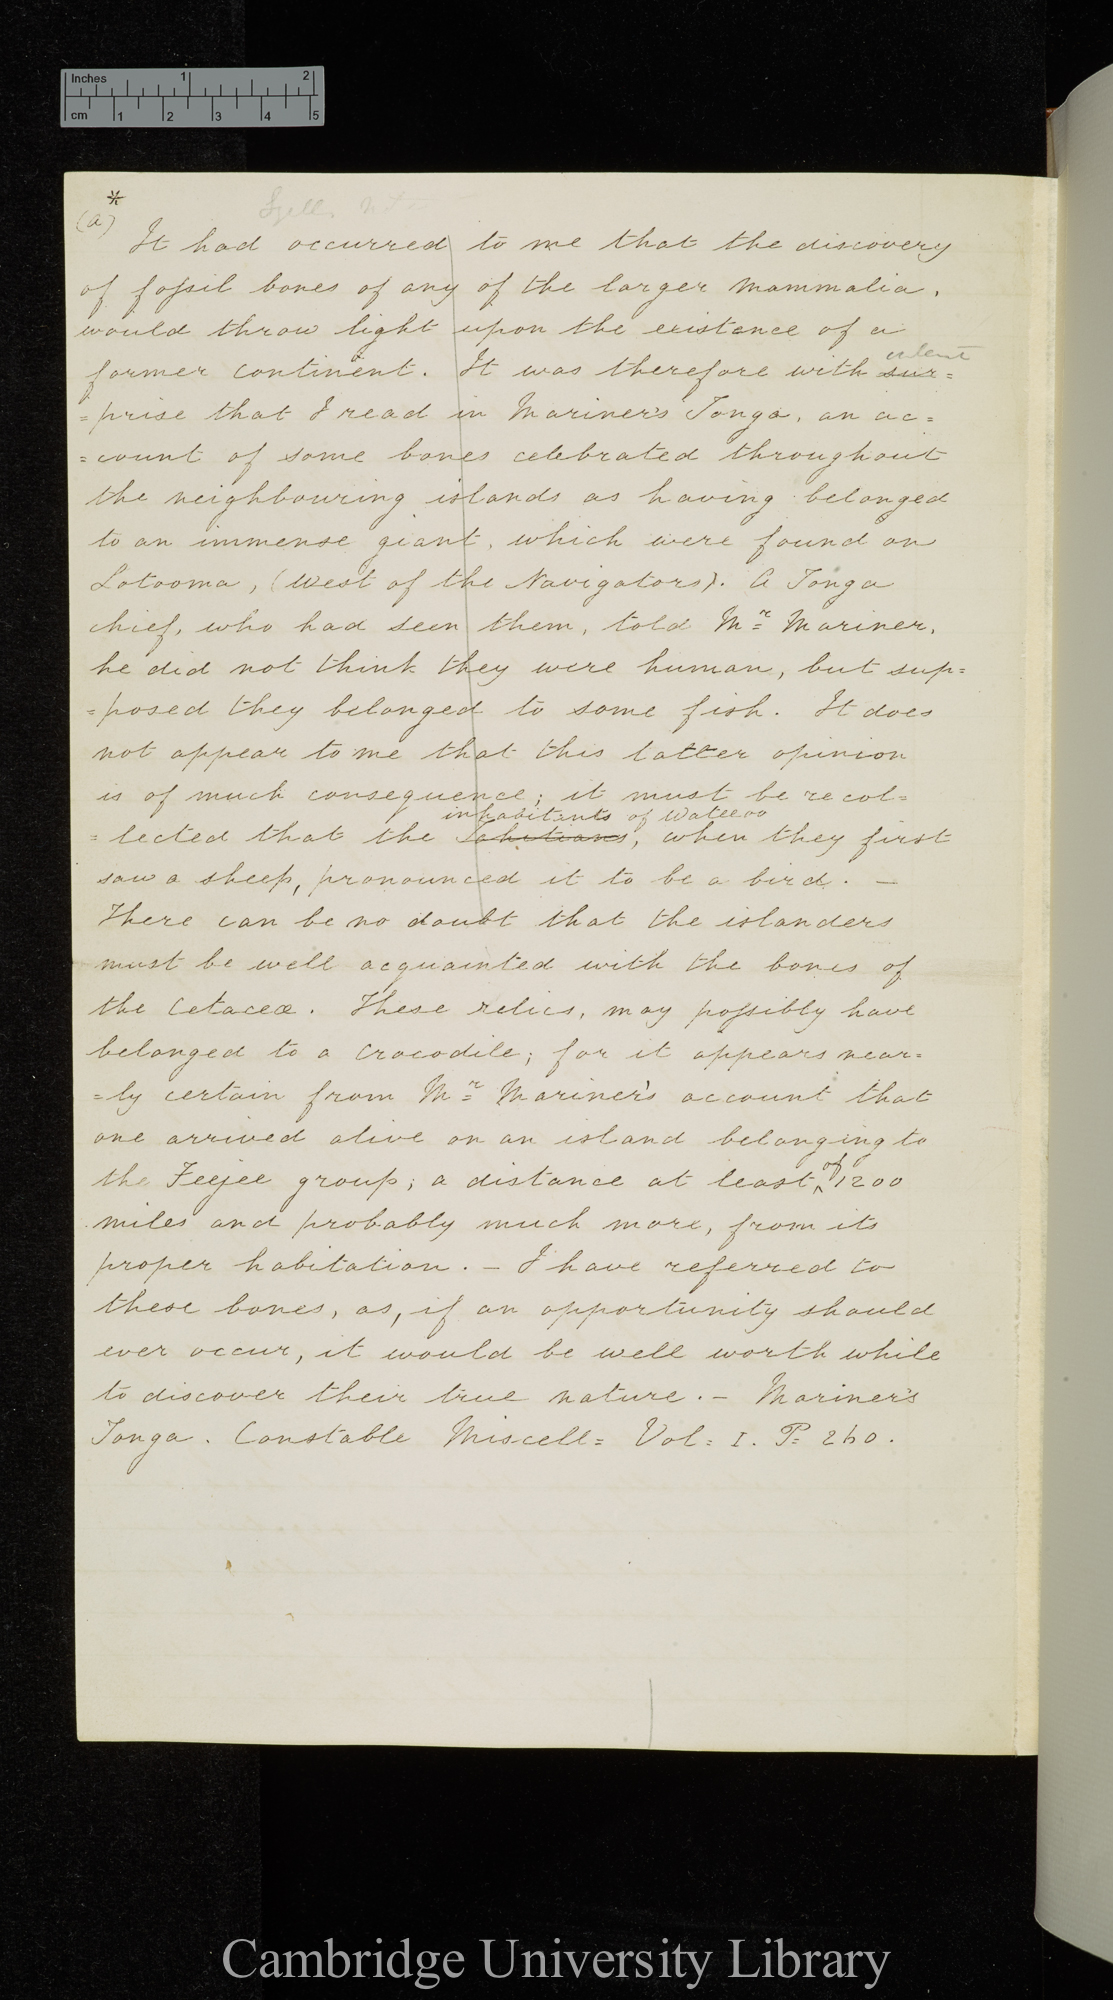 Inches 1 2
cm 1 2 3 4 5
*
(a)
It had occurred to me that the discovery
of fossil bones of any of the larger Mammalia,
would throw light upon the existence of a
former continent. It was therefore with sur=
=prise that I read in Mariner's Tonga, an ac=
=count of some bones celebrated throughout
the neighbouring islands as having belonged
to an immense giant, which were found on
Lotooma, (West of the Navigators). A Tonga
chief, who had seen them, told Mr= Mariner,
he did not think they were human, but sup=
=posed they belonged to some fish. It does
not appear to me that this latter opinion
is of much consequence; it must be recol=
inhabitants of Wateeoo
=lected that the Tahitians, when they first
saw a sheep, pronounced it to be a bird. —
There can be no doubt that the islanders
must be well acquainted with the bones of
the Cetaceæ. These relics, may possibly have
belonged to a Crocodile; for it appears near=
=ly certain from Mr= Mariner's account that
one arrived alive on an island belonging to
the Feejee group; a distance at least, of 1200
miles and probably much more, from its
proper habitation. — I have referred to
these bones, as, if an opportunity should
ever occur, it would be well worth while
to discover their true nature. — Mariner's
Tonga. Constable Miscell= Vol= I. P= 260.
Cambridge University Library